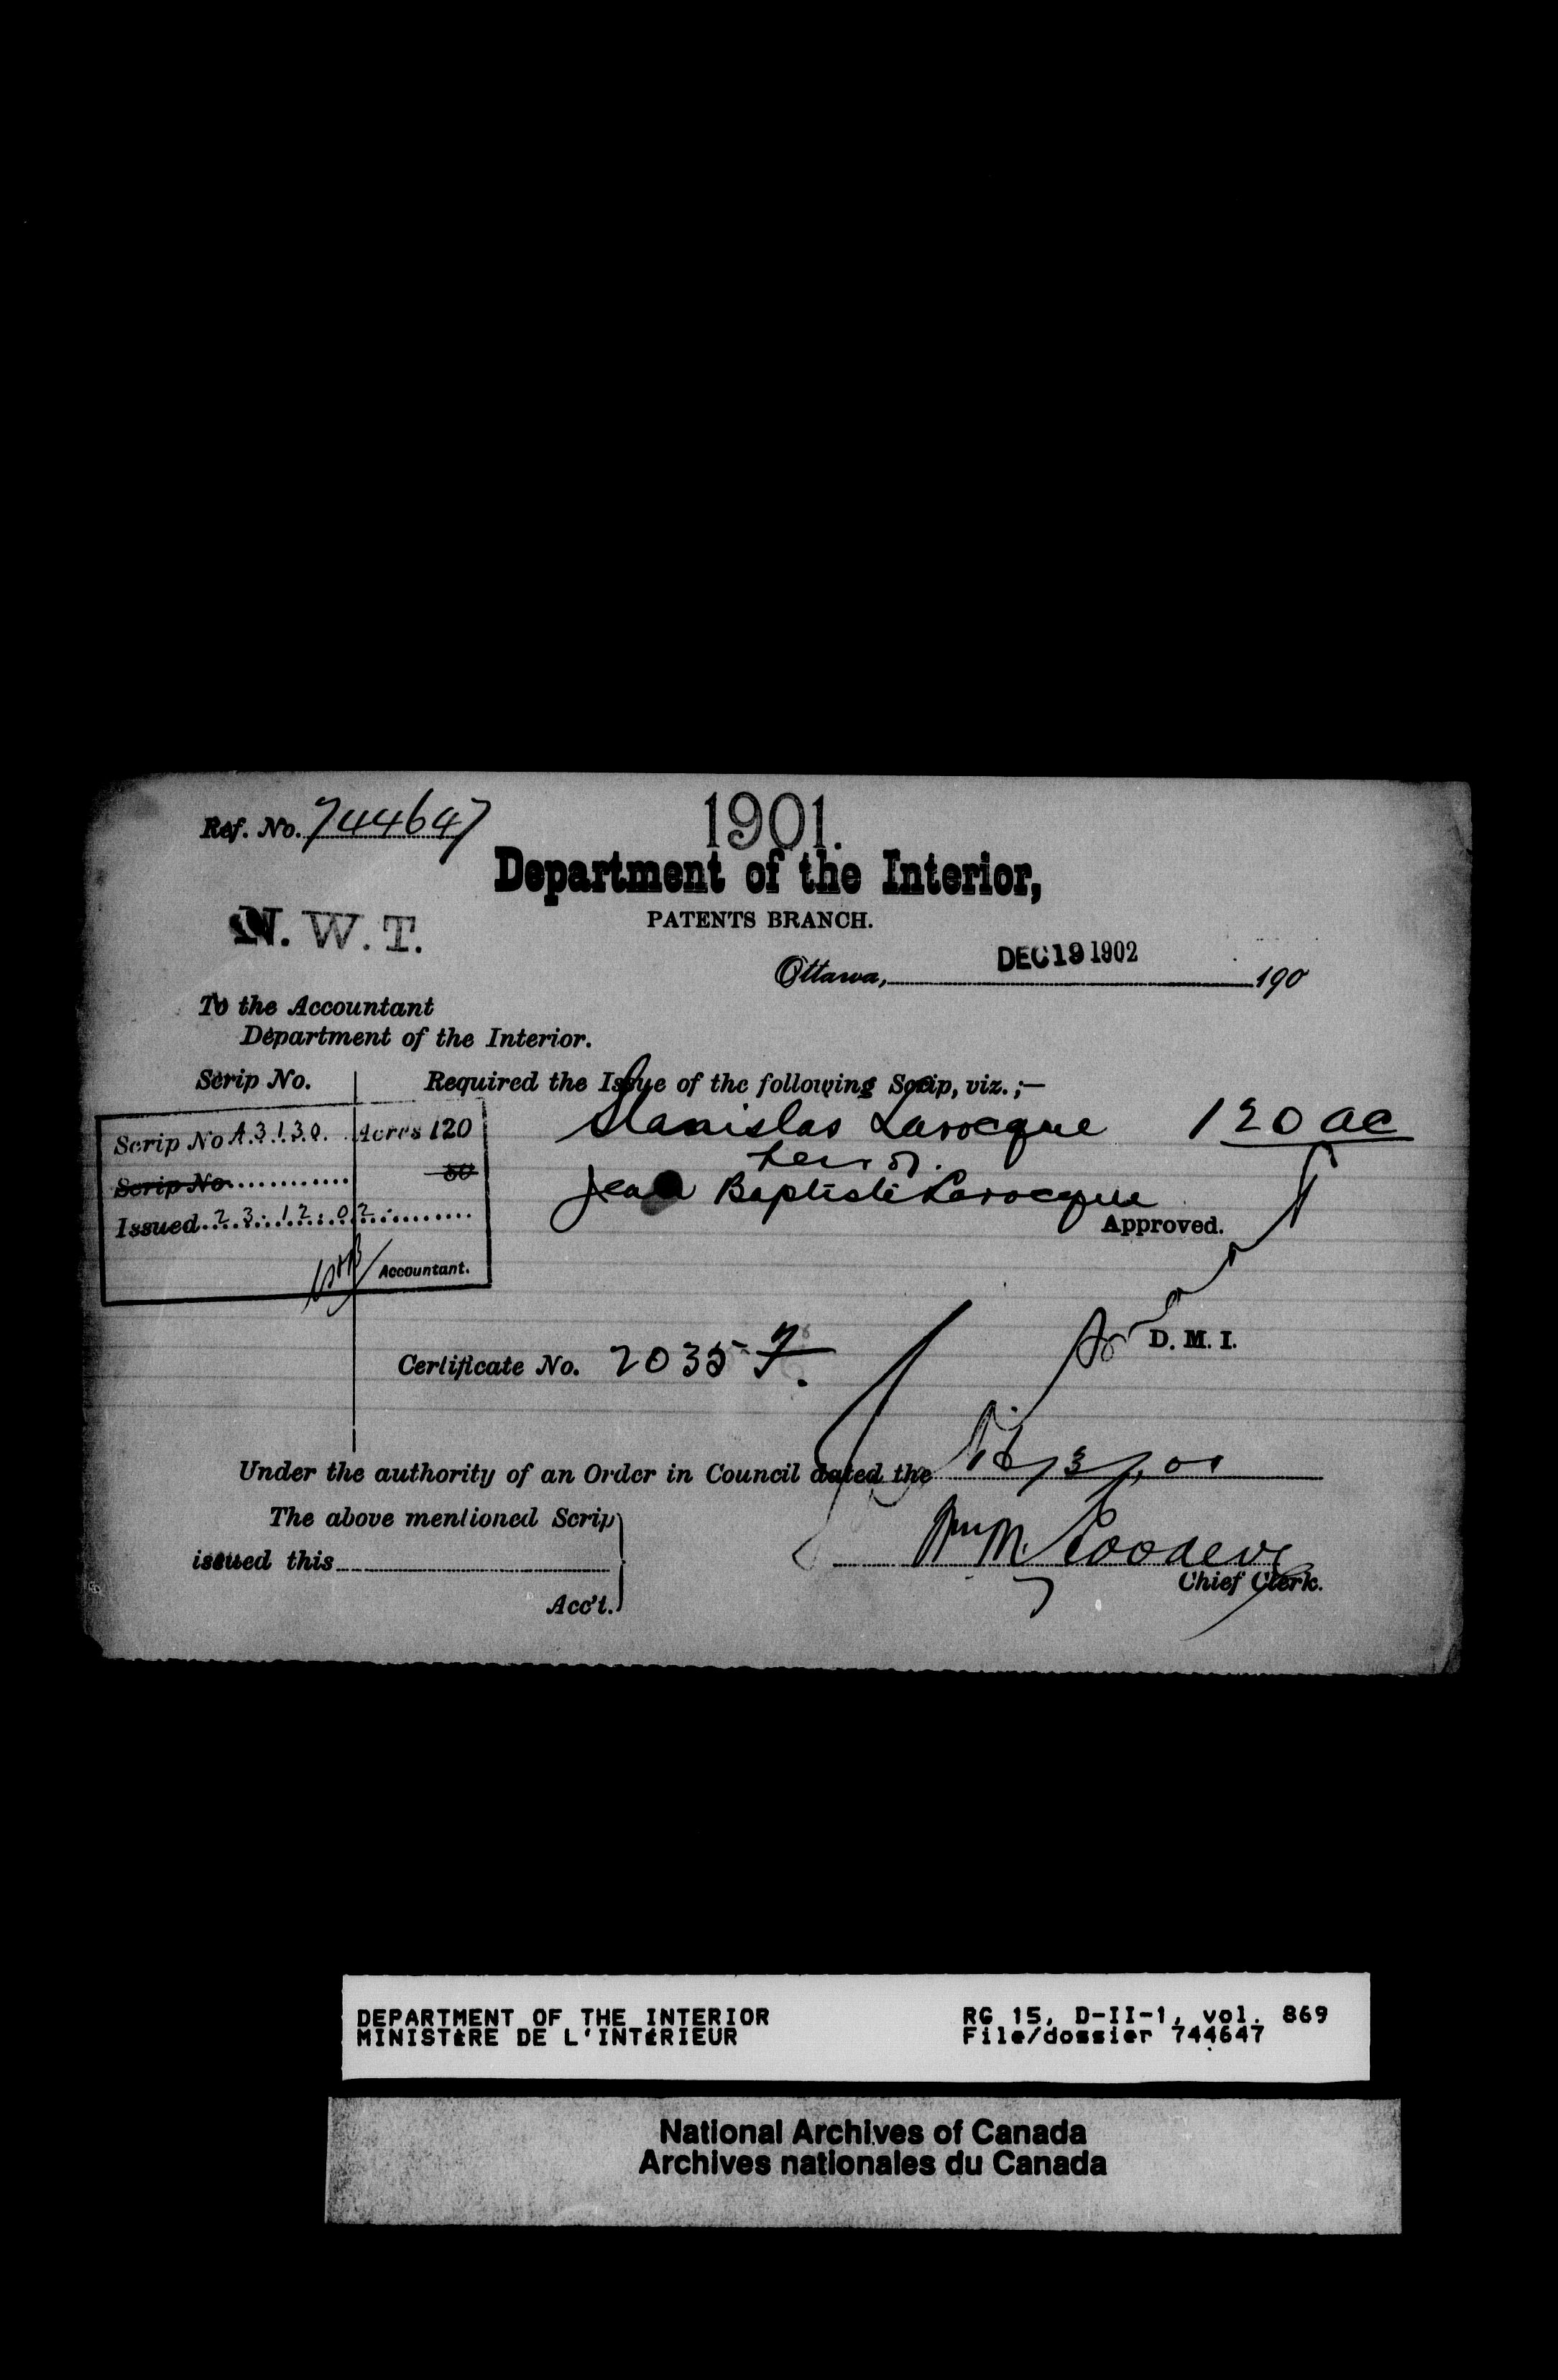 Ref. No. 744647
1901.
Department of the Interior,
PATENTS BRANCH.
N. W. T.
DEC 19 1902
Ottawa, 190
To the Accountant
Department of the Interior.
Scrip No.
Required the Issue of the following Scrip, viz. ;—
Scrip No A.3.1.3.0. Acres 120
Scrip No............ 80
Issued..23.12.02..........
Accountant.
Stanislas Larocque 120 ac
heir of
Jean Baptiste Larocque
Approved.
D. M. I.
Certificate No. 2035 F.
Under the authority of an Order in Council dated the
The above mentioned Scrip
issued this
Acc't.
Wm M. Goodeve
Chief Clerk.
DEPARTMENT OF THE INTERIOR RG 15, D-II-1, vol. 869
MINISTÈRE DE L'INTÉRIEUR File/dossier 744647
National Archives of Canada
Archives nationales du Canada